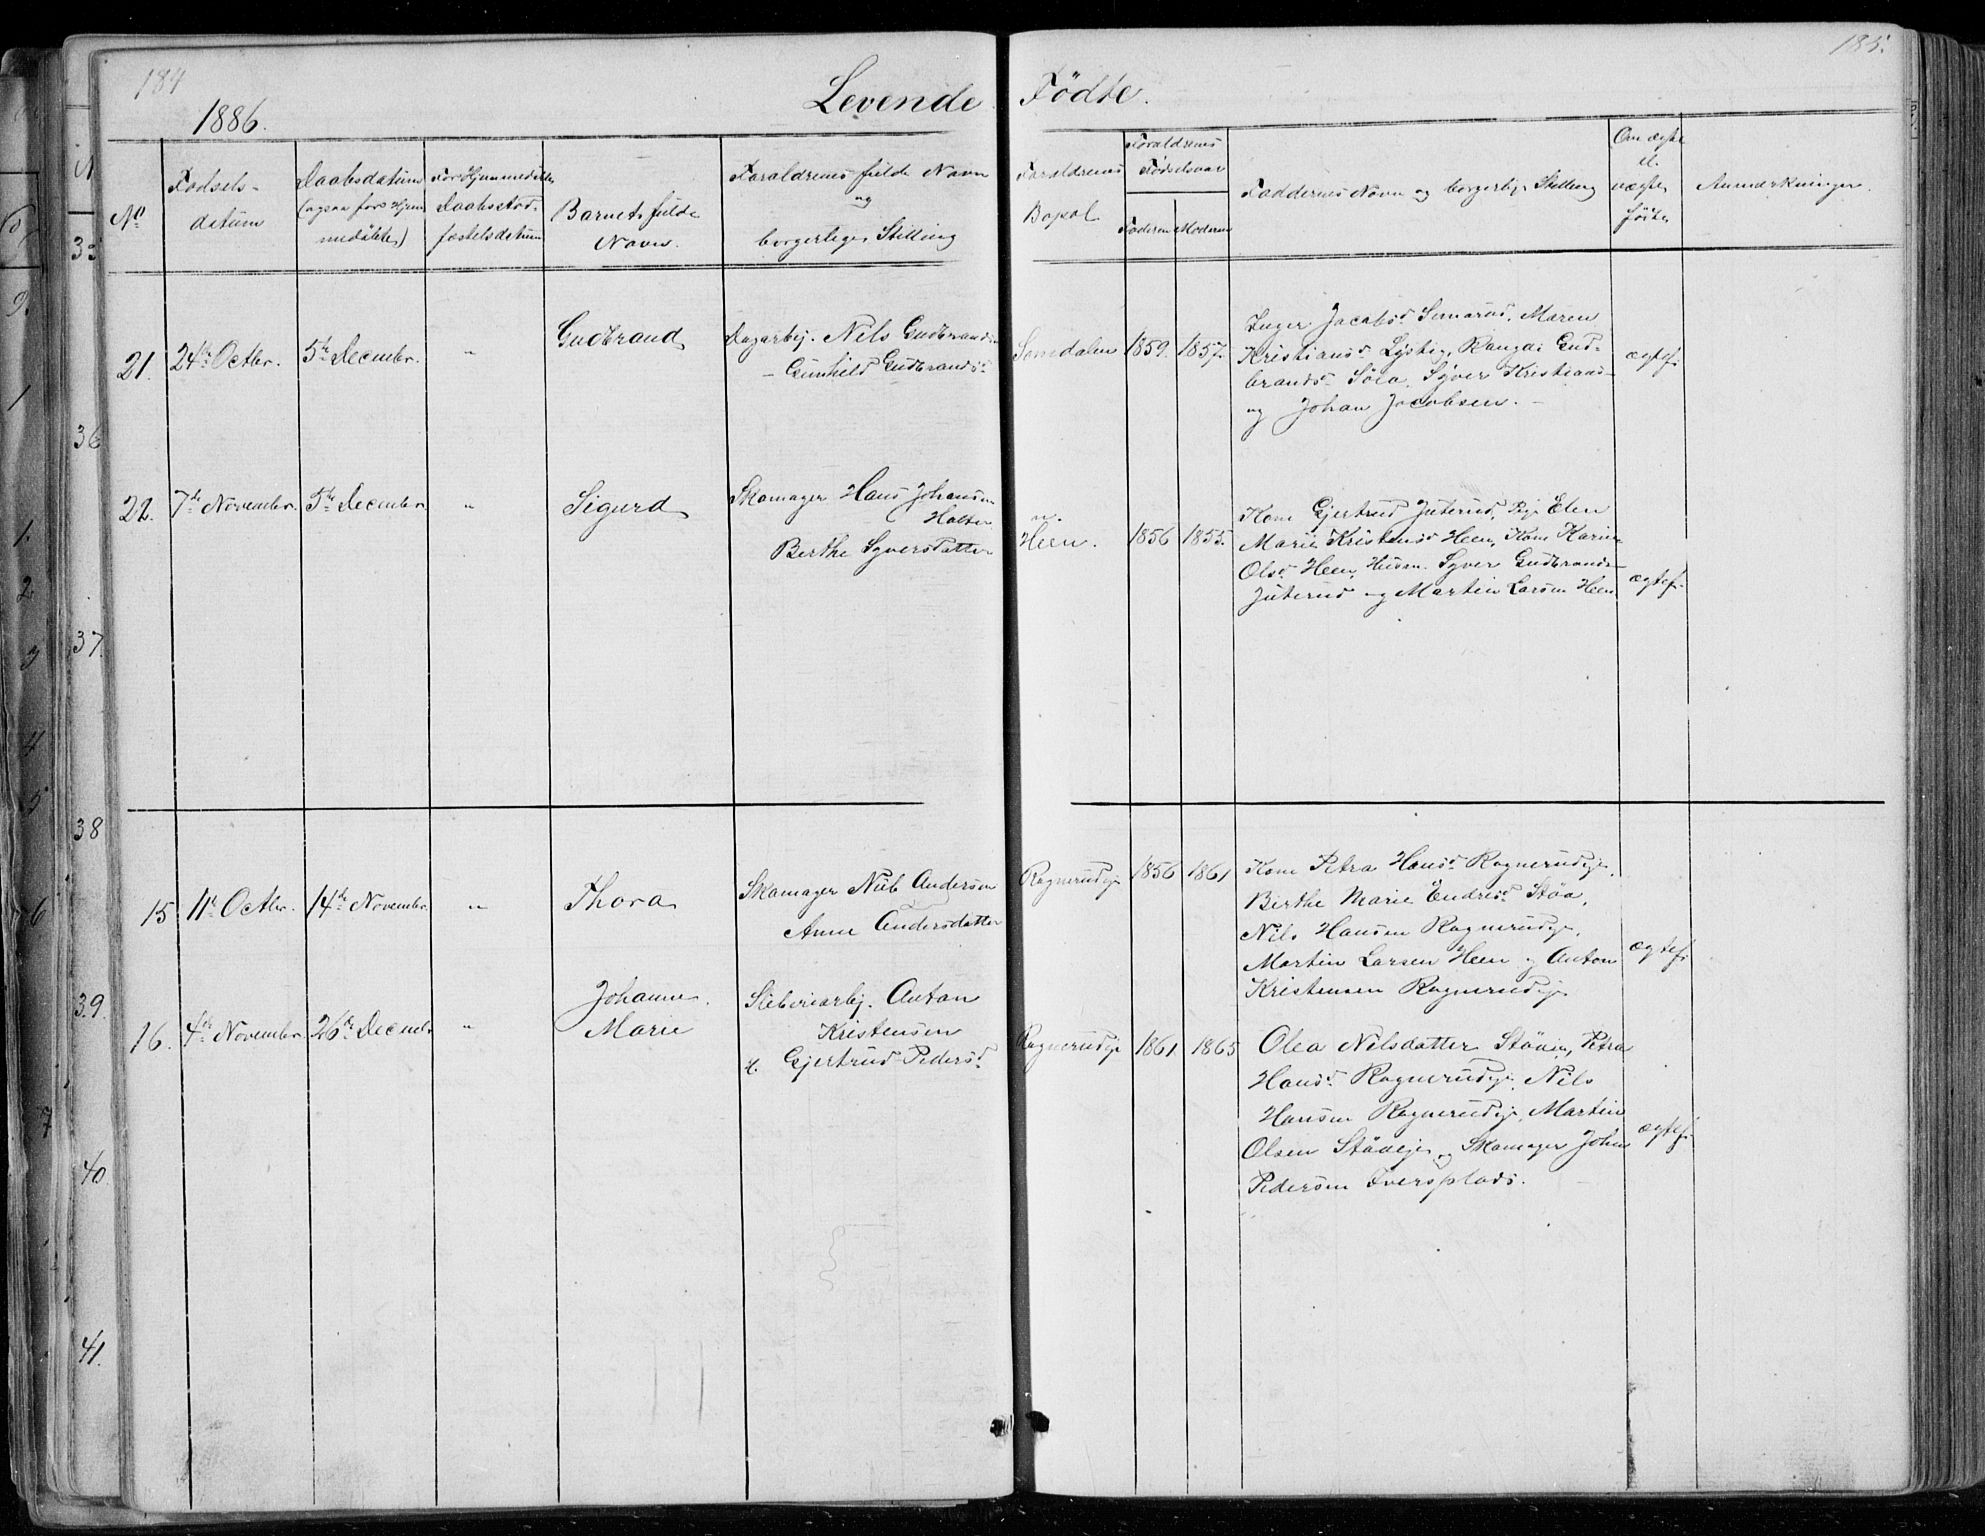 184
185.
1886.
Levende Fødte.
No
Fødsels-
datum
Daabsdatum
(ogsaa for Hjem
medøbte)
For Hjemmedøbte
Daabsstad-
fæstelsdatum
Barnets fulde
Navn.
Forældrenes fulde Navn
og
borgerlige Stilling
Forældrenes
Bopæl
Forældrenes
Fødselsaar
Faderen Moderen
Faddernes Navn og borgerlige Stilling
Om ægte
el.
uægte
født.
Anmærkninger.
21. 24de Octbr. 5te Decembr. " Gudbrand
Dagarbej. Nils Gudbrands
Gunhild Gudbrandsd
Somdalen 1859. 1857.
Inger Jacobsd Semerud, Maren
Kristiansd Lybtig, Rangdi Gud-
brandsd Søea, Syver Kristians-
og Johan Jacobsen. -
ægtef.
22. 7de Novembr. 5te Decembr. " Sigurd
Skomager Hans Johansen
Halten
Berthe Syversdatter
Heen. 1856 1855.
Kone Gjertrud Juterud, Pige Elen
Marie Kristensd Heen, Kone Karine
Olsd Heen, Husm. Syver Gudbrands-
Juterud og Martin Larsen Heen
ægtef.
15 11te Octbr. 14de Novembr. " Thora
Skomager Nils Andersen
Anne Andersdatter
Ragnerudeje 1856 1861
Kone Petra Hansd Ragnerudeje,
Birthe Marie Endresd Støa,
Nils Hansen Ragnerudeje,
Martin Larsen Heen og Anton
Kristensen Ragnerudeje
ægtef.
16. 4de Novembr. 26de Decembr. " Johanne
Marie
Sliberiarbej. Anton
Kristensen
H. Gjertrud Pedersd
Ragnerudeje 1861. 1865
Olea Nilsdatter Støeie, Petra
Hansd Ragnerudeje, Nils
Hansen Ragnerudeje, Martin
Olsen Støaeje og Skomager Johan
Pedersen Iversplads.
ægtef.
35
36
37.
38
39.
40
41.
1
1.
2
3
4
5
6
7